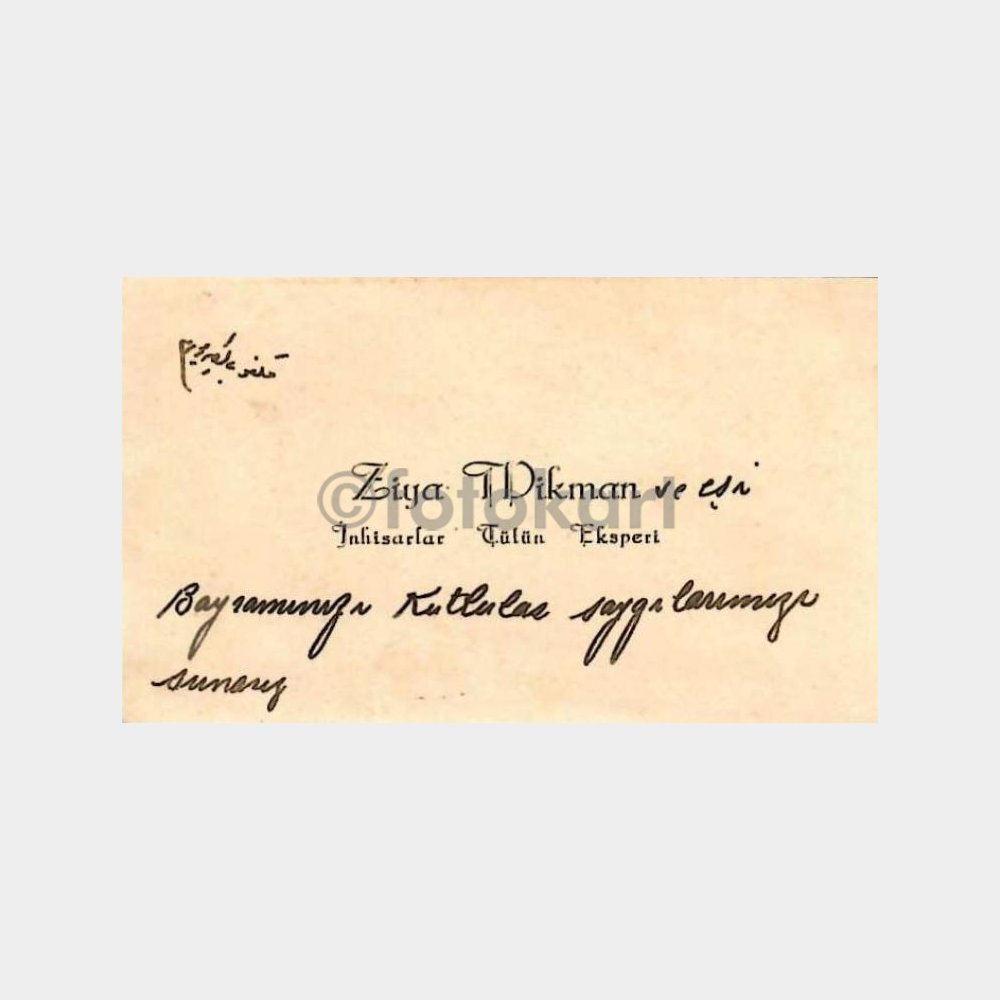 Ziya Dikman ve eşi
©fotokart
İnhisarlar Tütün Eksperi
Bayramınızı Kutlular saygılarımızı
sunarız